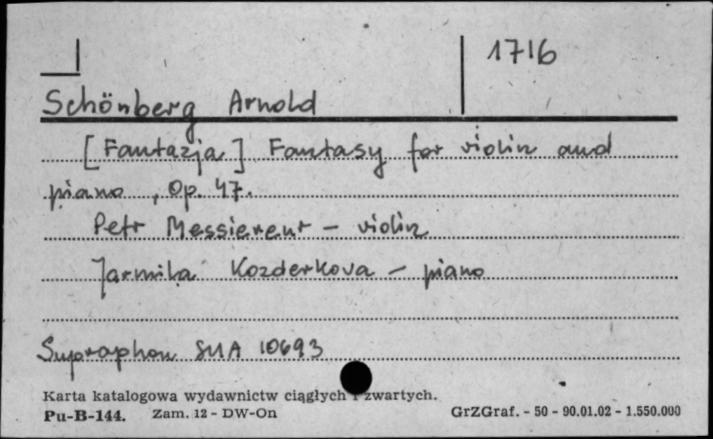 1716
Schönberg Arnold
[Fantazja] Fantasy for violin and
piano, Op. 47.
Petr Messiereur - violin
Jarmila Kozderkova - piano
Supraphon SUA 10693
Karta katalogowa wydawnictw ciągłych i zwartych.
Pu-B-144. Zam. 12 - DW-On GrZGraf. - 50 - 90.01.02 - 1.550.000